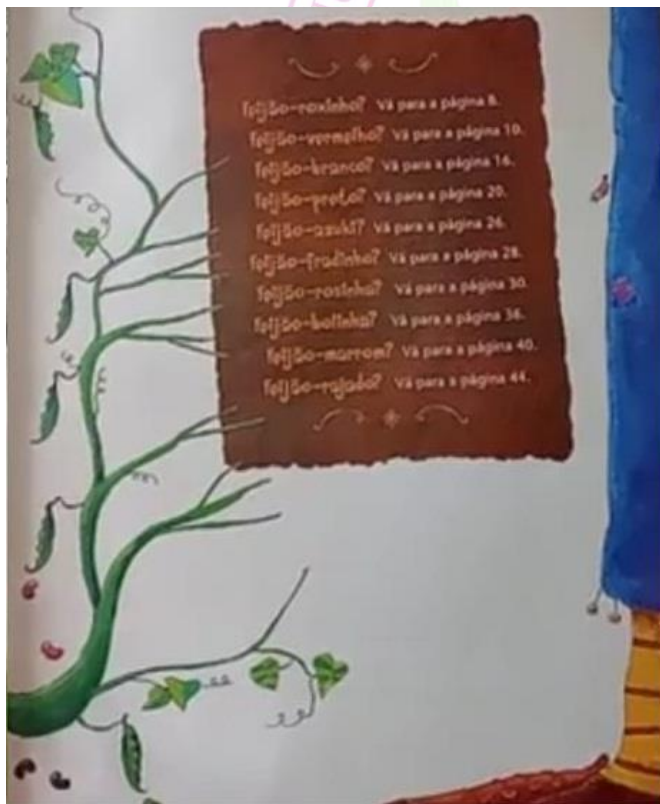 feijão-roxinho? Vá para a página 8.
feijão-vermelho? Vá para a página 10.
feijão-branco? Vá para a página 16.
feijão-preto? Vá para a página 20.
feijão-azuki? Vá para a página 26.
feijão-fradinho? Vá para a página 28.
feijão-rosinha? Vá para a página 30.
feijão-bolinha? Vá para a página 36.
feijão-marrom? Vá para a página 40.
feijão-rajado? Vá para a página 44.